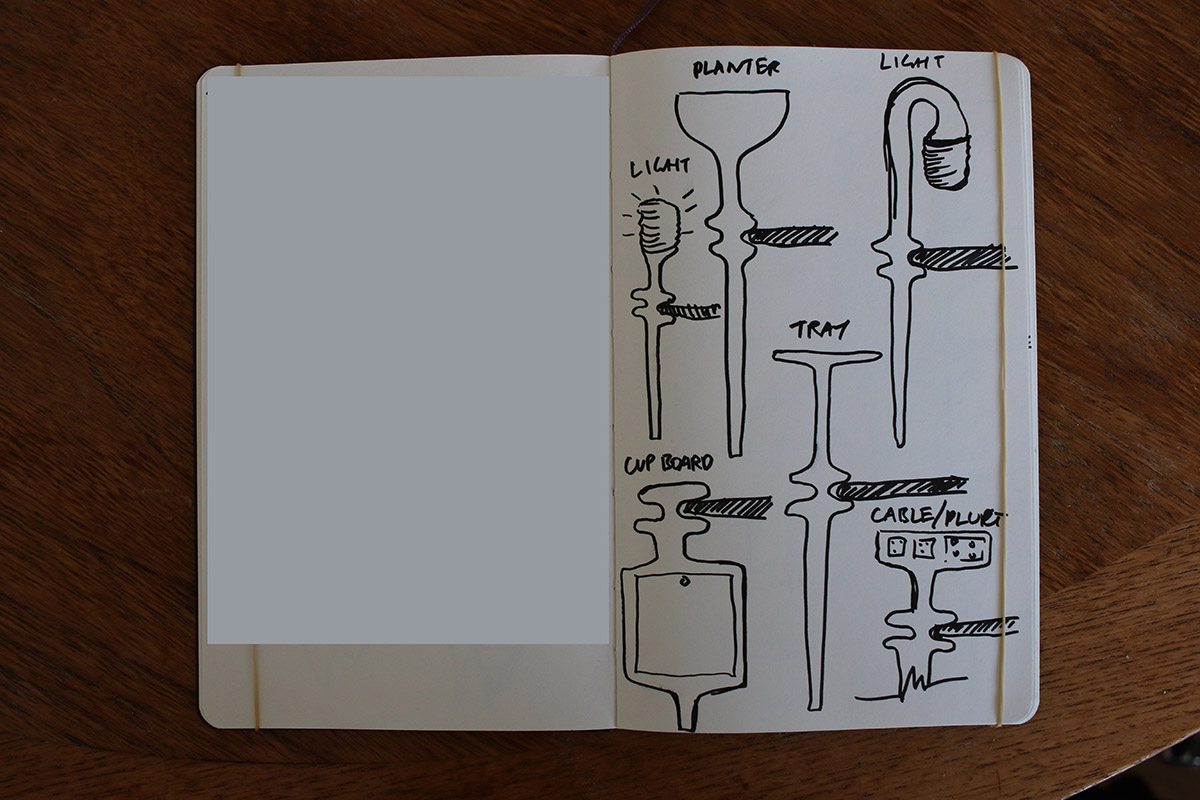 PLANTER
LIGHT
LIGHT
TRAY
CUPBOARD
CABLE/